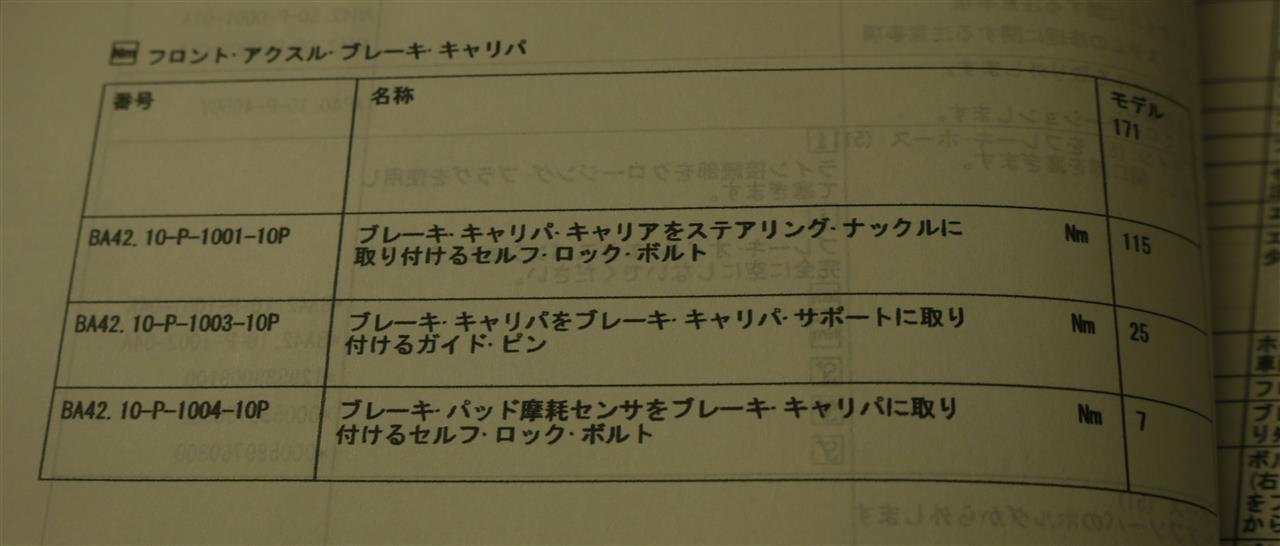 Nm フロント・アクスル・ブレーキ・キャリパ
番号 名称 モデル
171
BA42.10-P-1001-10P ブレーキ・キャリパ・キャリアをステアリング・ナックルに Nm 115
取り付けるセルフ・ロック・ボルト
BA42.10-P-1003-10P ブレーキ・キャリパをブレーキ・キャリパ・サポートに取り Nm 25
付けるガイド・ピン
BA42.10-P-1004-10P ブレーキ・パッド摩耗センサをブレーキ・キャリパに取り Nm 7
付けるセルフ・ロック・ボルト